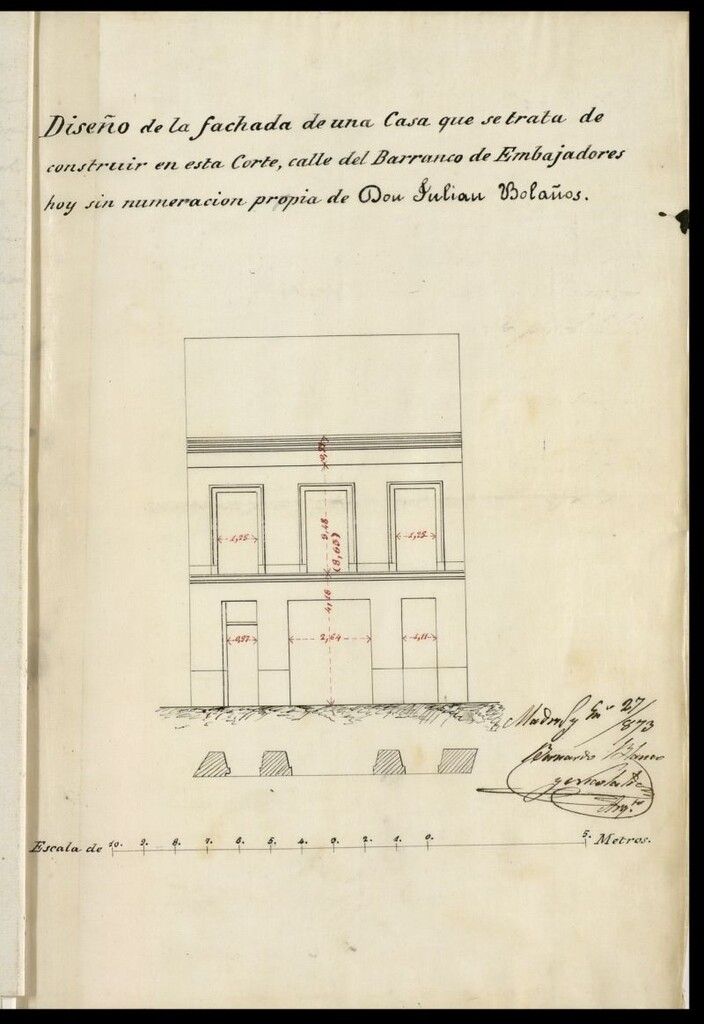 Diseño de la fachada de una Casa que se trata de
construir en esta Corte, calle del Barranco de Embajadores
hoy sin numeracion propia de Don Julian Bolaños.
1,25
1,25
9,48
(8,65)
4,16
0,97
2,64
1,11
Madrid y En.º 27/
/873
Bernardo Blanco
Arq.to
Escala de 10. 9. 8. 7. 6. 5. 4. 3. 2. 1. 0. 5. Metros.